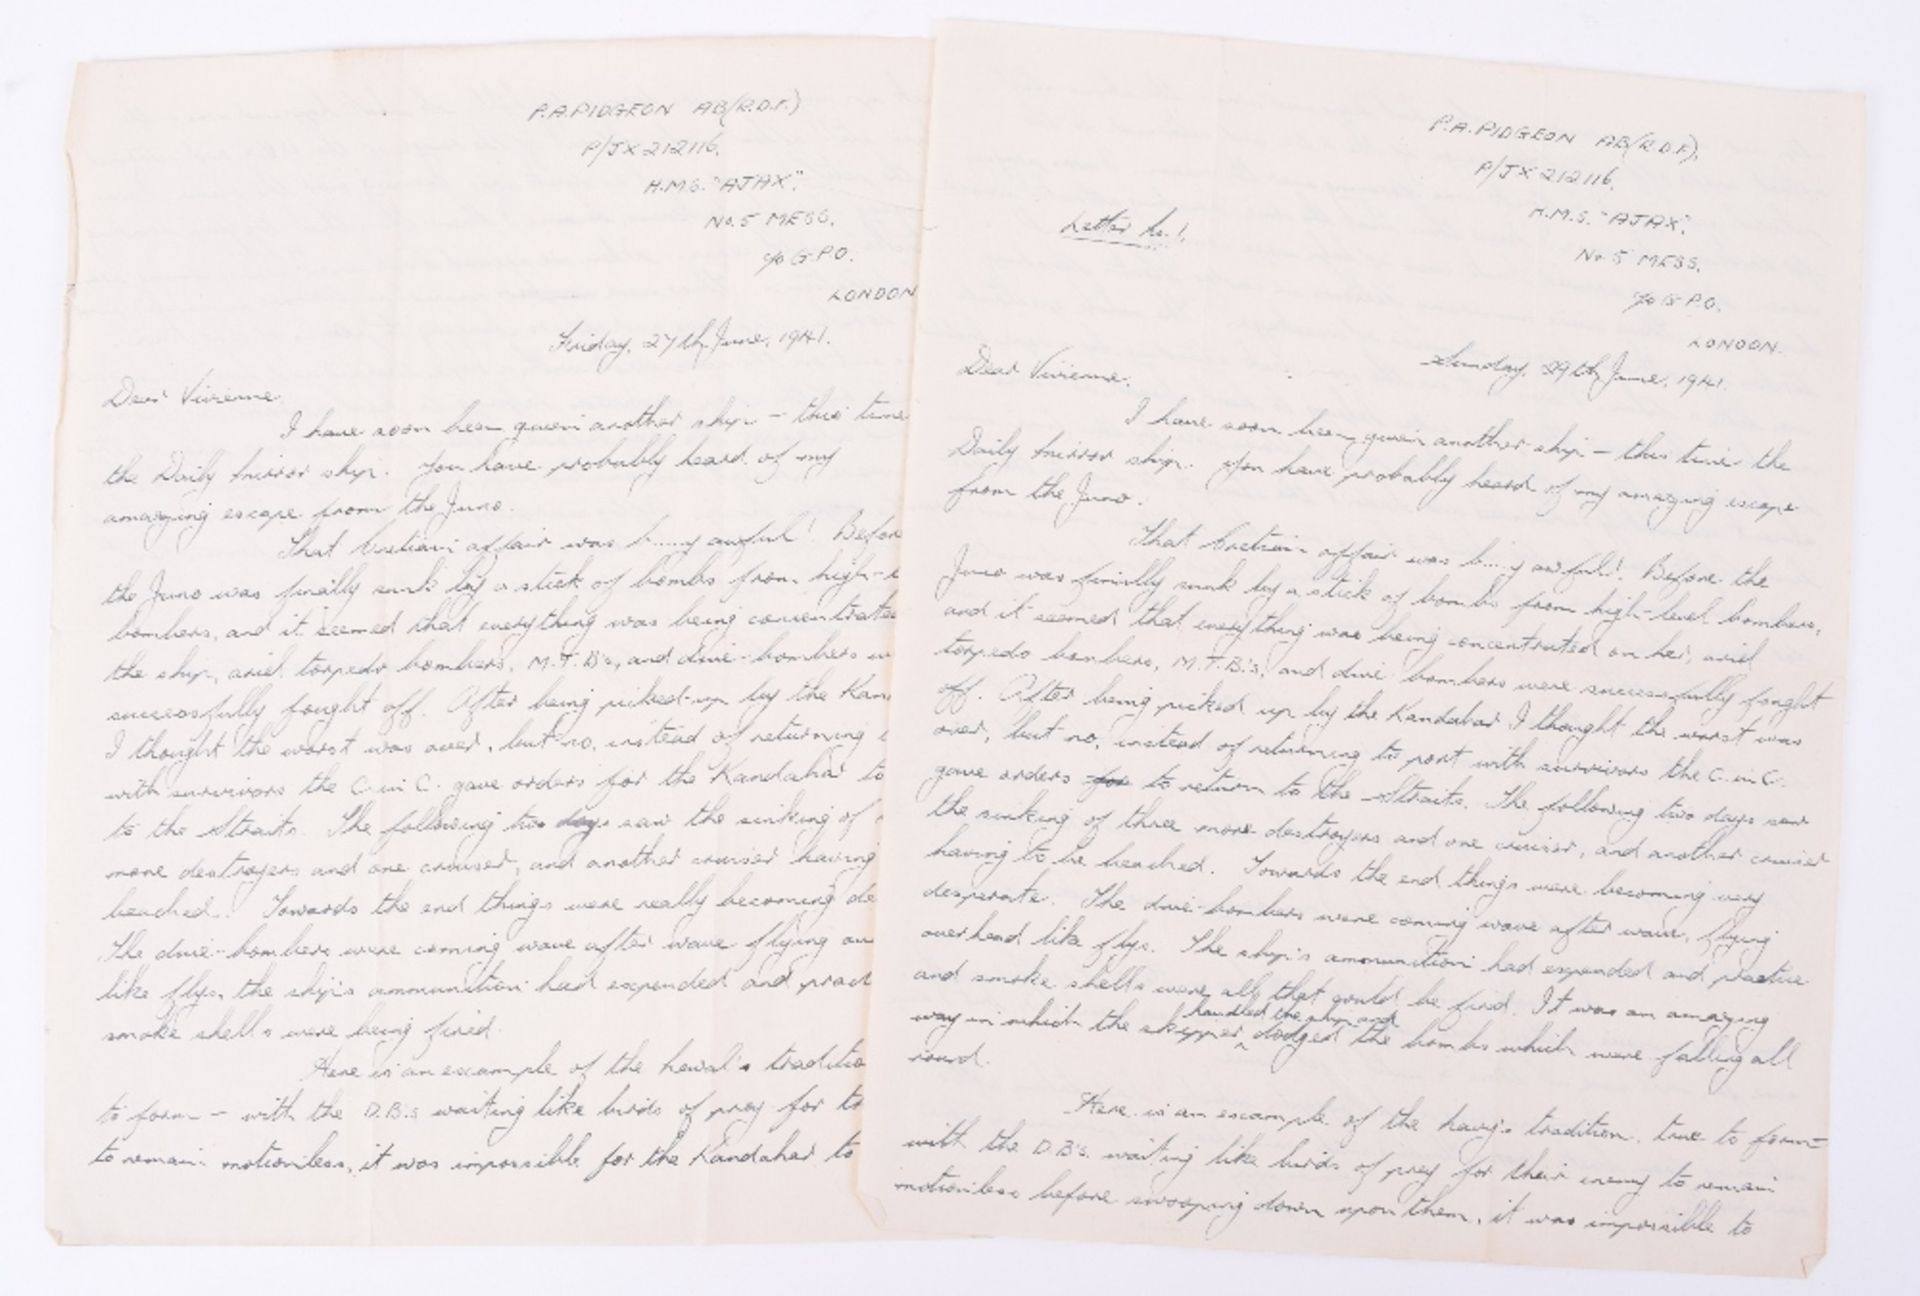 P.A. PIDGEON AB(R.D.F.)
P/JX 212116.
H.M.S. "AJAX".
No. 5 MESS.
c/o G.P.O.
LONDON
Friday, 27th June, 1941.
Dear Vivienne.
I have soon been given another ship – this time
the Daily Mirror ship. You have probably heard of my
amazing escape from the Juno.
That Cretian affair was b.....y awful! Befor
the Juno was finally sunk by a stick of bombs from high-
bombers, and it seemed that everything was being concentrated
the ship, ariel torpedo bombers, M.T.B's, and dive-bombers w
successfully fought off. After being picked-up by the Kan
I thought the worst was over, but no, instead of returning
with survivors the C. in C. gave orders for the Kandahar to
to the Straits. The following two days saw the sinking of
more destroyers and one cruiser, and another cruiser having
beached. Towards the end things were really becoming de
The dive-bombers were coming wave after wave flying ov
like flys, the ship's ammunition had expended and pract
smoke shells were being fired.
Here is an example of the Naval's traditio
to form – with the D.B.'s waiting like birds of prey for t
to remain motionless, it was impossible for the Kandahar to
P.A. PIDGEON AB(R.D.F.),
P/JX 212116.
H.M.S. "AJAX".
No. 5 MESS.
c/o G.P.O.
LONDON.
Letter No. 1.
Sunday, 29th June, 1941.
Dear Vivienne.
I have soon been given another ship – this time the
Daily Mirror ship. You have probably heard of my amazing escape
from the Juno.
That Cretain affair was b....y awful! Before the
Juno was finially sunk by a stick of bombs from high-level bombers,
and it seemed that everything was being concentrated on her, ariel
torpedo bombers, M.T.B.'s, and dive bombers were successfully fought
off. After being picked up by the Kandahar I thought the worst was
over, but no, instead of returning to port with survivors the C. in C.
gave orders for to return to the Straits. The following two days saw
the sinking of three more destroyers and one cruiser, and another cruiser
having to be beached. Towards the end things were becoming very
desperate. The dive-bombers were coming wave after wave, flying
overhead like flys. The ship's ammunition had expended and practice
and smoke shells were all that could be fired. It was an amazing
handled the ship and
way in which the skipper ^ dodged the bombs which were falling all
round.
Here is an example of the navy's tradition, true to form –
with the D.B's. waiting like birds of prey for their enemy to remain
motionless before swooping down upon them, it was impossible to